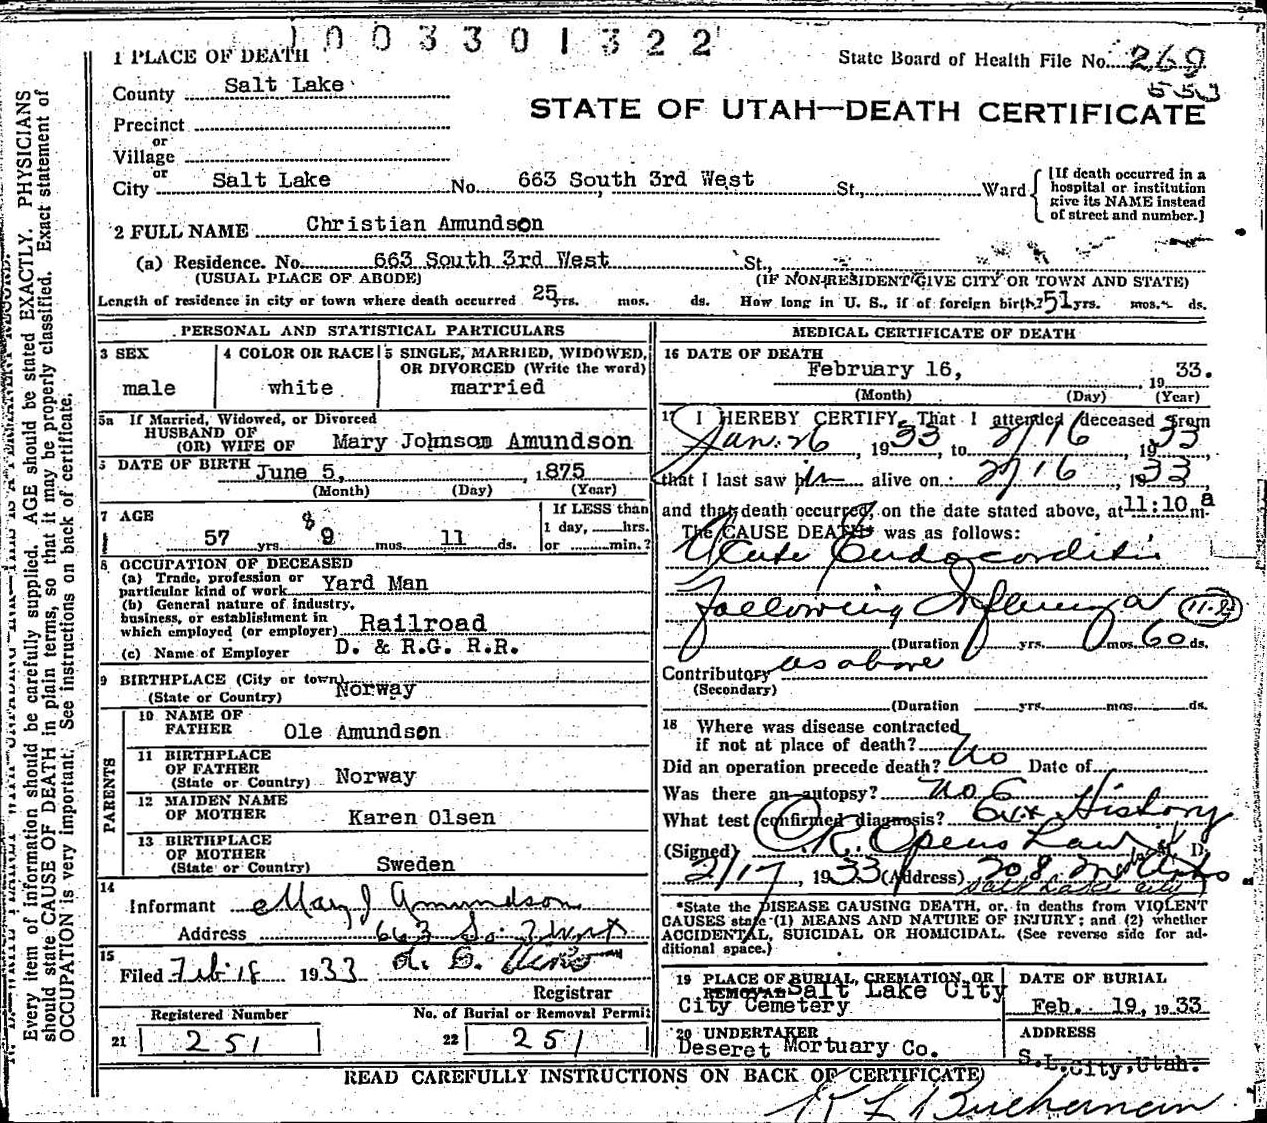 1003301322
1 PLACE OF DEATH
State Board of Health File No. 269
553
County Salt Lake
STATE OF UTAH—DEATH CERTIFICATE
Precinct
or
Village
or
City Salt Lake No. 663 South 3rd West St., Ward
[If death occurred in a
hospital or institution
give its NAME instead
of street and number.]
2 FULL NAME Christian Amundson
(a) Residence. No. 663 South 3rd West St.,
(USUAL PLACE OF ABODE) (IF NON-RESIDENT GIVE CITY OR TOWN AND STATE)
Length of residence in city or town where death occurred 25 yrs. mos. ds. How long in U. S., if of foreign birth? 51 yrs. mos. ds.
PERSONAL AND STATISTICAL PARTICULARS
3 SEX
male
4 COLOR OR RACE
white
5 SINGLE, MARRIED, WIDOWED,
OR DIVORCED (Write the word)
married
5a If Married, Widowed, or Divorced
HUSBAND OF
(OR) WIFE OF Mary Johnson Amundson
DATE OF BIRTH June 5, 1875
(Month) (Day) (Year)
7 AGE
57 yrs. 8 9 mos. 11 ds.
If LESS than
1 day, hrs.
or min.?
8 OCCUPATION OF DECEASED
(a) Trade, profession or
particular kind of work Yard Man
(b) General nature of industry,
business, or establishment in
which employed (or employer) Railroad
(c) Name of Employer D. & R.G. R.R.
9 BIRTHPLACE (City or town)
(State or Country) Norway
PARENTS
10 NAME OF
FATHER Ole Amundson
11 BIRTHPLACE
OF FATHER
(State or Country) Norway
12 MAIDEN NAME
OF MOTHER Karen Olsen
13 BIRTHPLACE
OF MOTHER
(State or Country) Sweden
14
Informant Mary J Amundson
Address 663 So. 3 West
15
Filed Feb 18 1933
Registrar
Registered Number
21 251
No. of Burial or Removal Permit
22 251
MEDICAL CERTIFICATE OF DEATH
16 DATE OF DEATH
February 16, 1933.
(Month) (Day) (Year)
17 I HEREBY CERTIFY, That I attended deceased from
Jan. 26, 1933, to 2/16, 1933,
that I last saw him alive on 2/16, 1933,
and that death occurred, on the date stated above, at 11:10 a m.
The CAUSE DEATH was as follows:
Acute Endocarditis
Following Influenza 11-B
(Duration yrs. mos. 60 ds.
Contributory as above
(Secondary)
(Duration yrs. mos. ds.
18 Where was disease contracted
if not at place of death?
Did an operation precede death? No Date of
Was there an autopsy? no
What test confirmed diagnosis? History
(Signed) M. D.
2/17, 1933 (Address) 208
Salt Lake City
*State the DISEASE CAUSING DEATH, or, in deaths from VIOLENT
CAUSES state (1) MEANS AND NATURE OF INJURY; and (2) whether
ACCIDENTAL, SUICIDAL OR HOMICIDAL. (See reverse side for ad-
ditional space.)
19 PLACE OF BURIAL, CREMATION, OR
REMOVAL Salt Lake City
City Cemetery
DATE OF BURIAL
Feb. 19, 1933
20 UNDERTAKER
Deseret Mortuary Co.
ADDRESS
S.L.City,Utah.
READ CAREFULLY INSTRUCTIONS ON BACK OF CERTIFICATE)
R L Buchanan
Every item of information should be carefully supplied. AGE should be stated EXACTLY. PHYSICIANS
should state CAUSE OF DEATH in plain terms, so that it may be properly classified. Exact statement of
OCCUPATION is very important. See instructions on back of certificate.